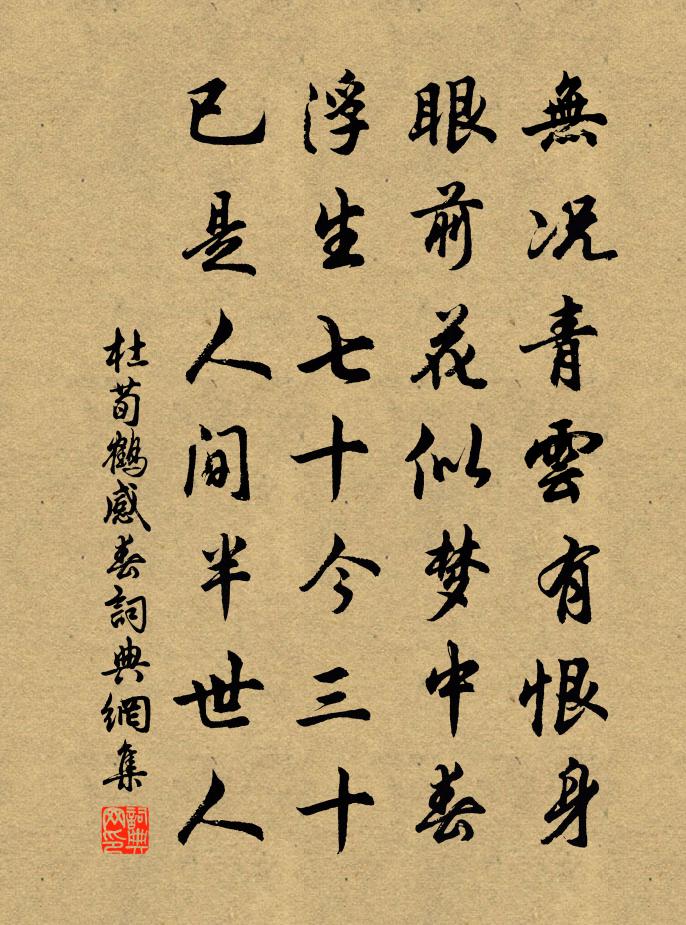 無況青雲有恨身
眼前花似梦中春
浮生七十今三十
已是人间半世人
杜荀鶴感春詞典網集
詞典網印